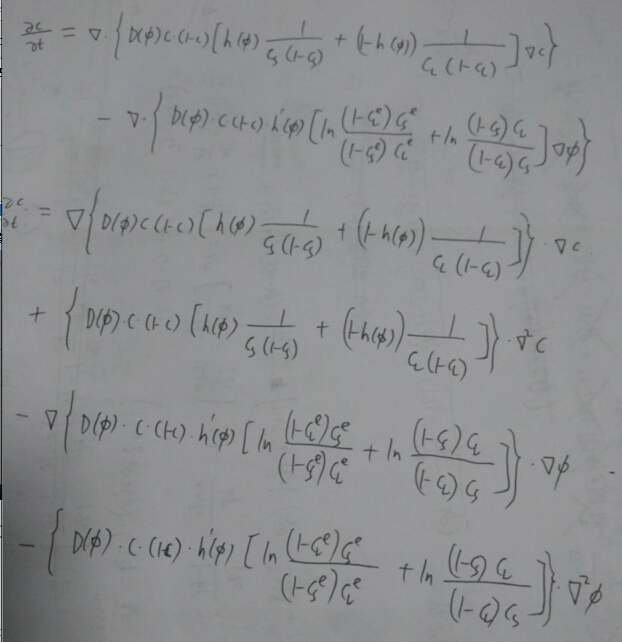 ∂c/∂t = ∇·{D(φ)c(1-c)[h(φ) 1/(c_s(1-c_s)) + (1-h(φ)) 1/(c_L(1-c_L))]∇c}
- ∇·{D(φ)·c(1-c)·h'(φ)[ln ((1-c_L^e)c_s^e)/((1-c_s^e)c_L^e) + ln ((1-c_s)c_L)/((1-c_L)c_s)]∇φ}
∂c/∂t = ∇{D(φ)c(1-c)[h(φ) 1/(c_s(1-c_s)) + (1-h(φ)) 1/(c_L(1-c_L))]}·∇c
+ {D(φ)·c·(1-c)[h(φ) 1/(c_s(1-c_s)) + (1-h(φ)) 1/(c_L(1-c_L))]}·∇²c
- ∇{D(φ)·c·(1-c)·h'(φ)[ln ((1-c_L^e)c_s^e)/((1-c_s^e)c_L^e) + ln ((1-c_s)c_L)/((1-c_L)c_s)]}·∇φ
- {D(φ)·c·(1-c)·h'(φ)[ln ((1-c_L^e)c_s^e)/((1-c_s^e)c_L^e) + ln ((1-c_s)c_L)/((1-c_L)c_s)]}·∇²φ